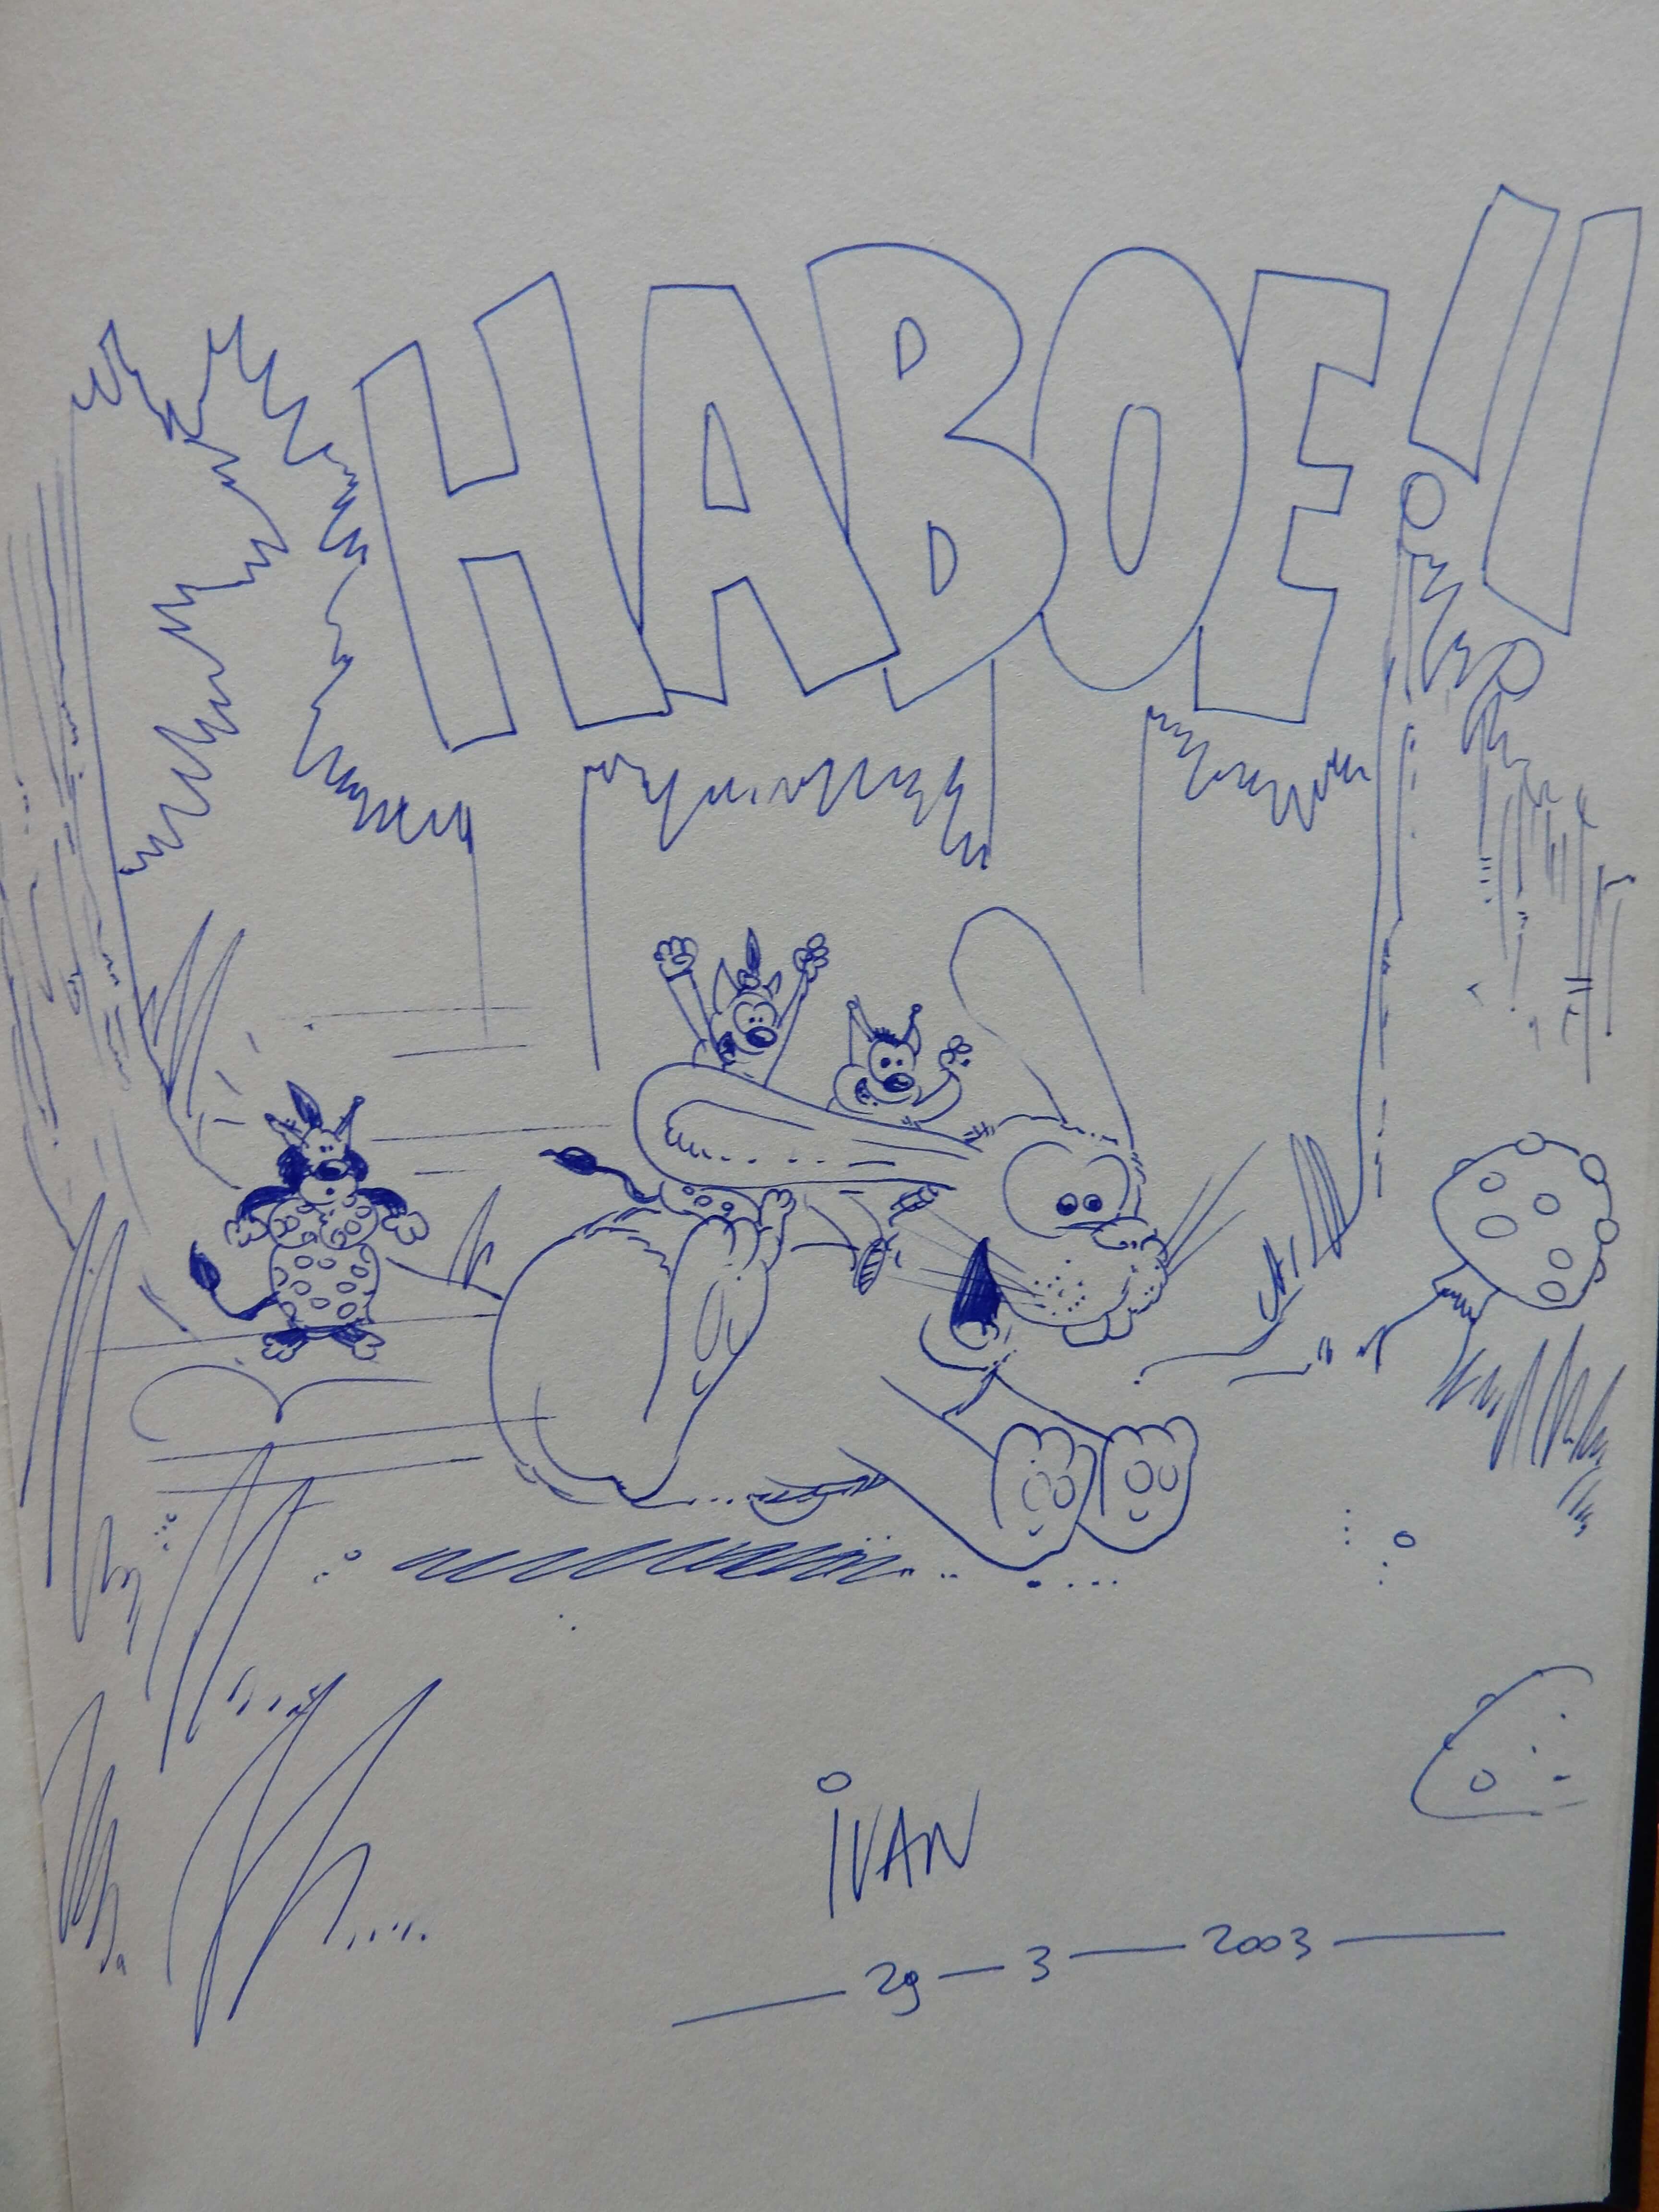 HABOE!!
IVAN
— 29 — 3 — 2003 —